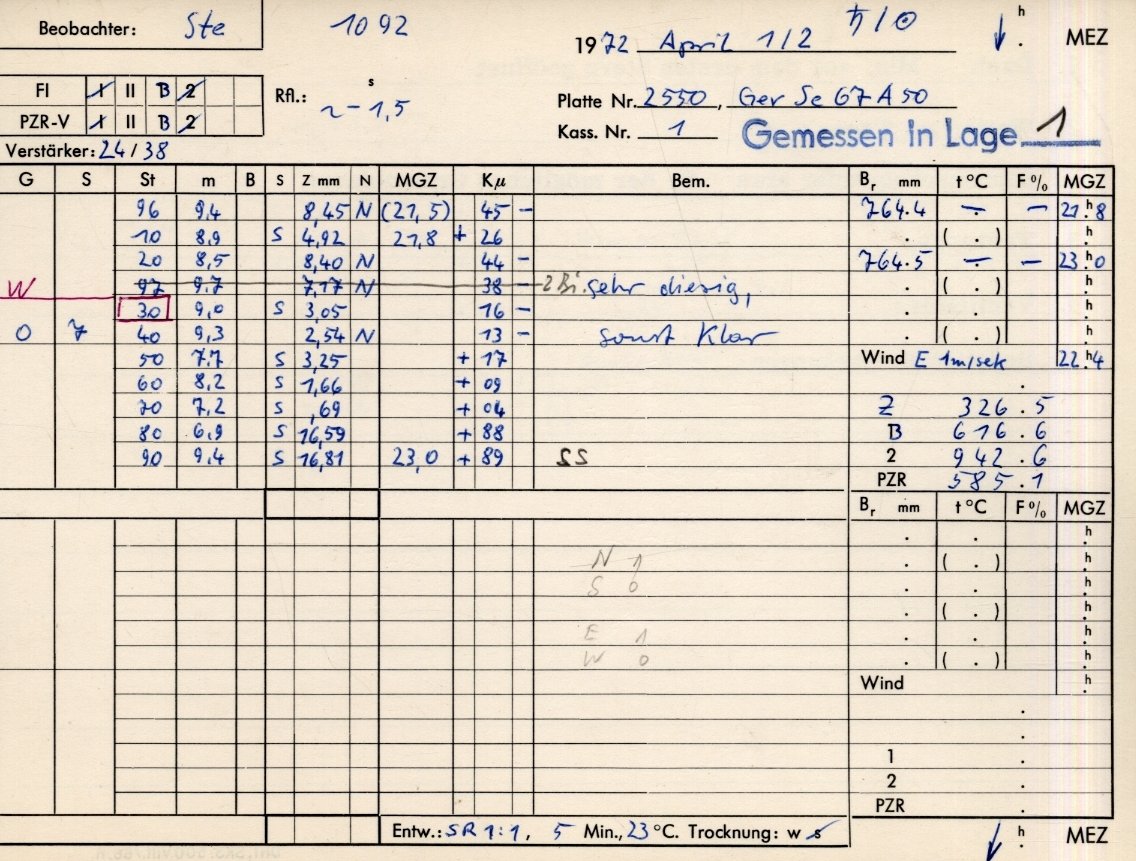 Beobachter: Ste 1092 1972 April 1/2 ♄/☉ h . MEZ
FI I II B 2
PZR-V I II B 2
Rfl.: s ~ -1,5
Platte Nr. 2550, Ger Se 67 A 50
Kass. Nr. 1 Gemessen in Lage 1
Verstärker: 24/38
G S St m B S Z mm N MGZ Kμ Bem. Br mm t °C F % MGZ
96 9,4 8,45 N (21,5) 45 - 764.4 - - 21h.8
10 8,9 S 4,92 21,8 + 26 . ( . ) h.
20 8,5 8,40 N 44 - 764.5 - - 23h.0
W 97 9,7 7,17 N 38 - 2 Bi. sehr diesig, . ( . ) h.
30 9,0 S 3,05 16 -
0 7 40 9,3 2,54 N 13 - sonst klar . ( . ) h.
50 7.7 S 3,25 + 17 Wind E 1m/sek 22h.4
60 8,2 S 1,66 + 09 .
70 7,2 S ,69 + 04 Z 326.5
80 6,9 S 16,59 + 88 B 616.6
90 9,4 S 16,81 23,0 + 89 2 942.6
PZR 585.1
Br mm t °C F % MGZ
. . h.
N 1 . ( . ) h.
S 0 . . h.
. ( . ) h.
E 1 . . h.
W 0 . ( . ) h.
Wind h.
.
.
1 .
2 .
PZR .
Entw.: SR 1:1, 5 Min., 23 °C. Trocknung: w s h . MEZ